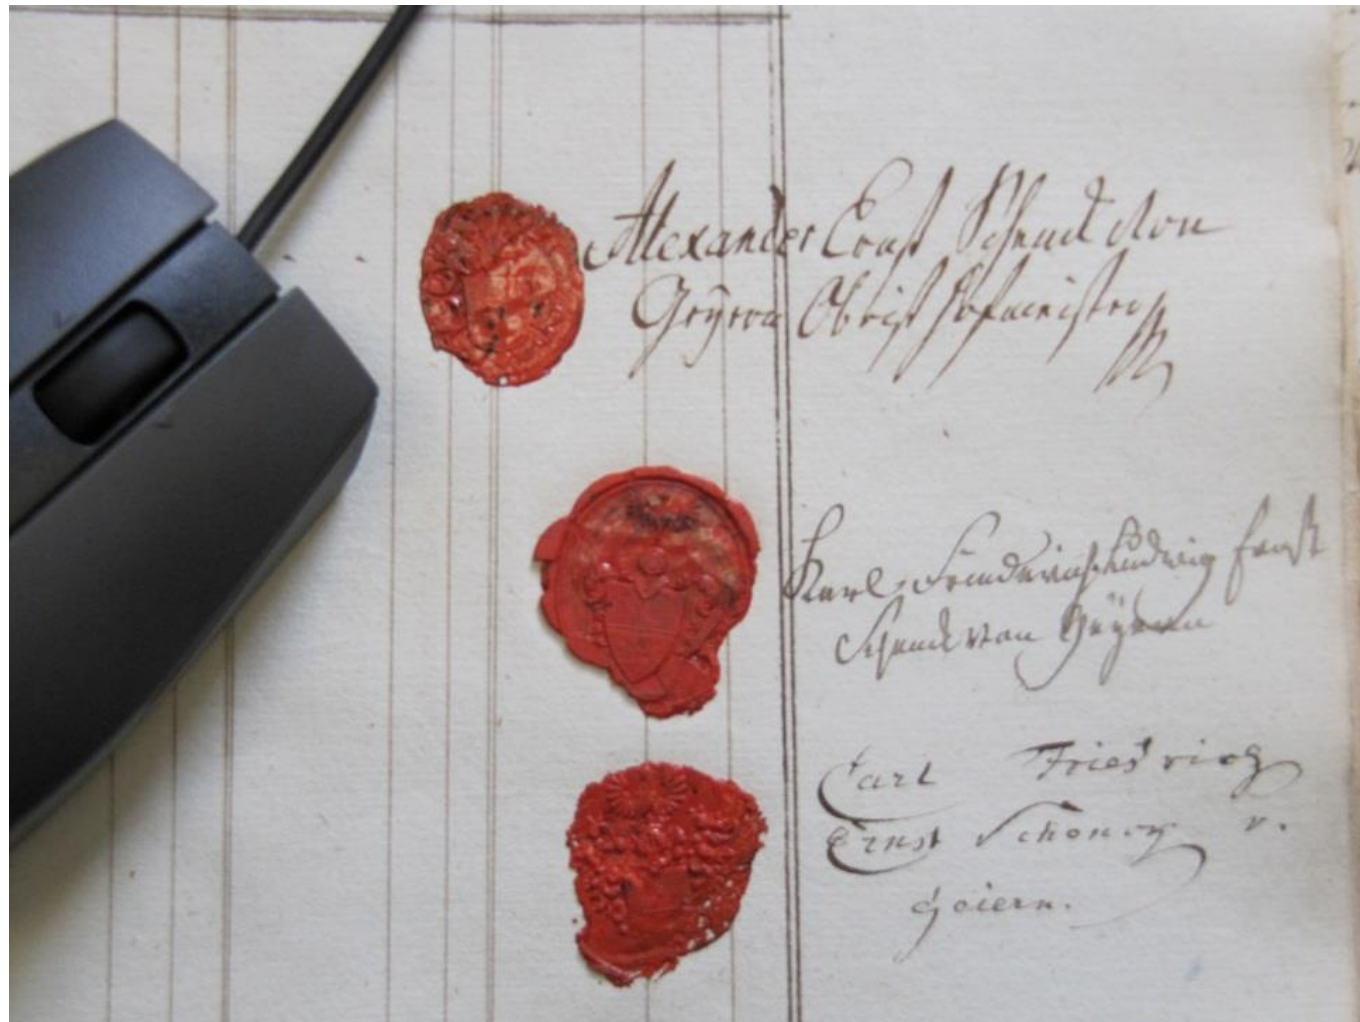 Alexander Ernst Schenck von
Geÿern Obrist hofmeister
Karl Friederich Ludwig Ernst
Schenck von Geÿern
Carl Friedrich
Ernst Schenck v.
Geiern.